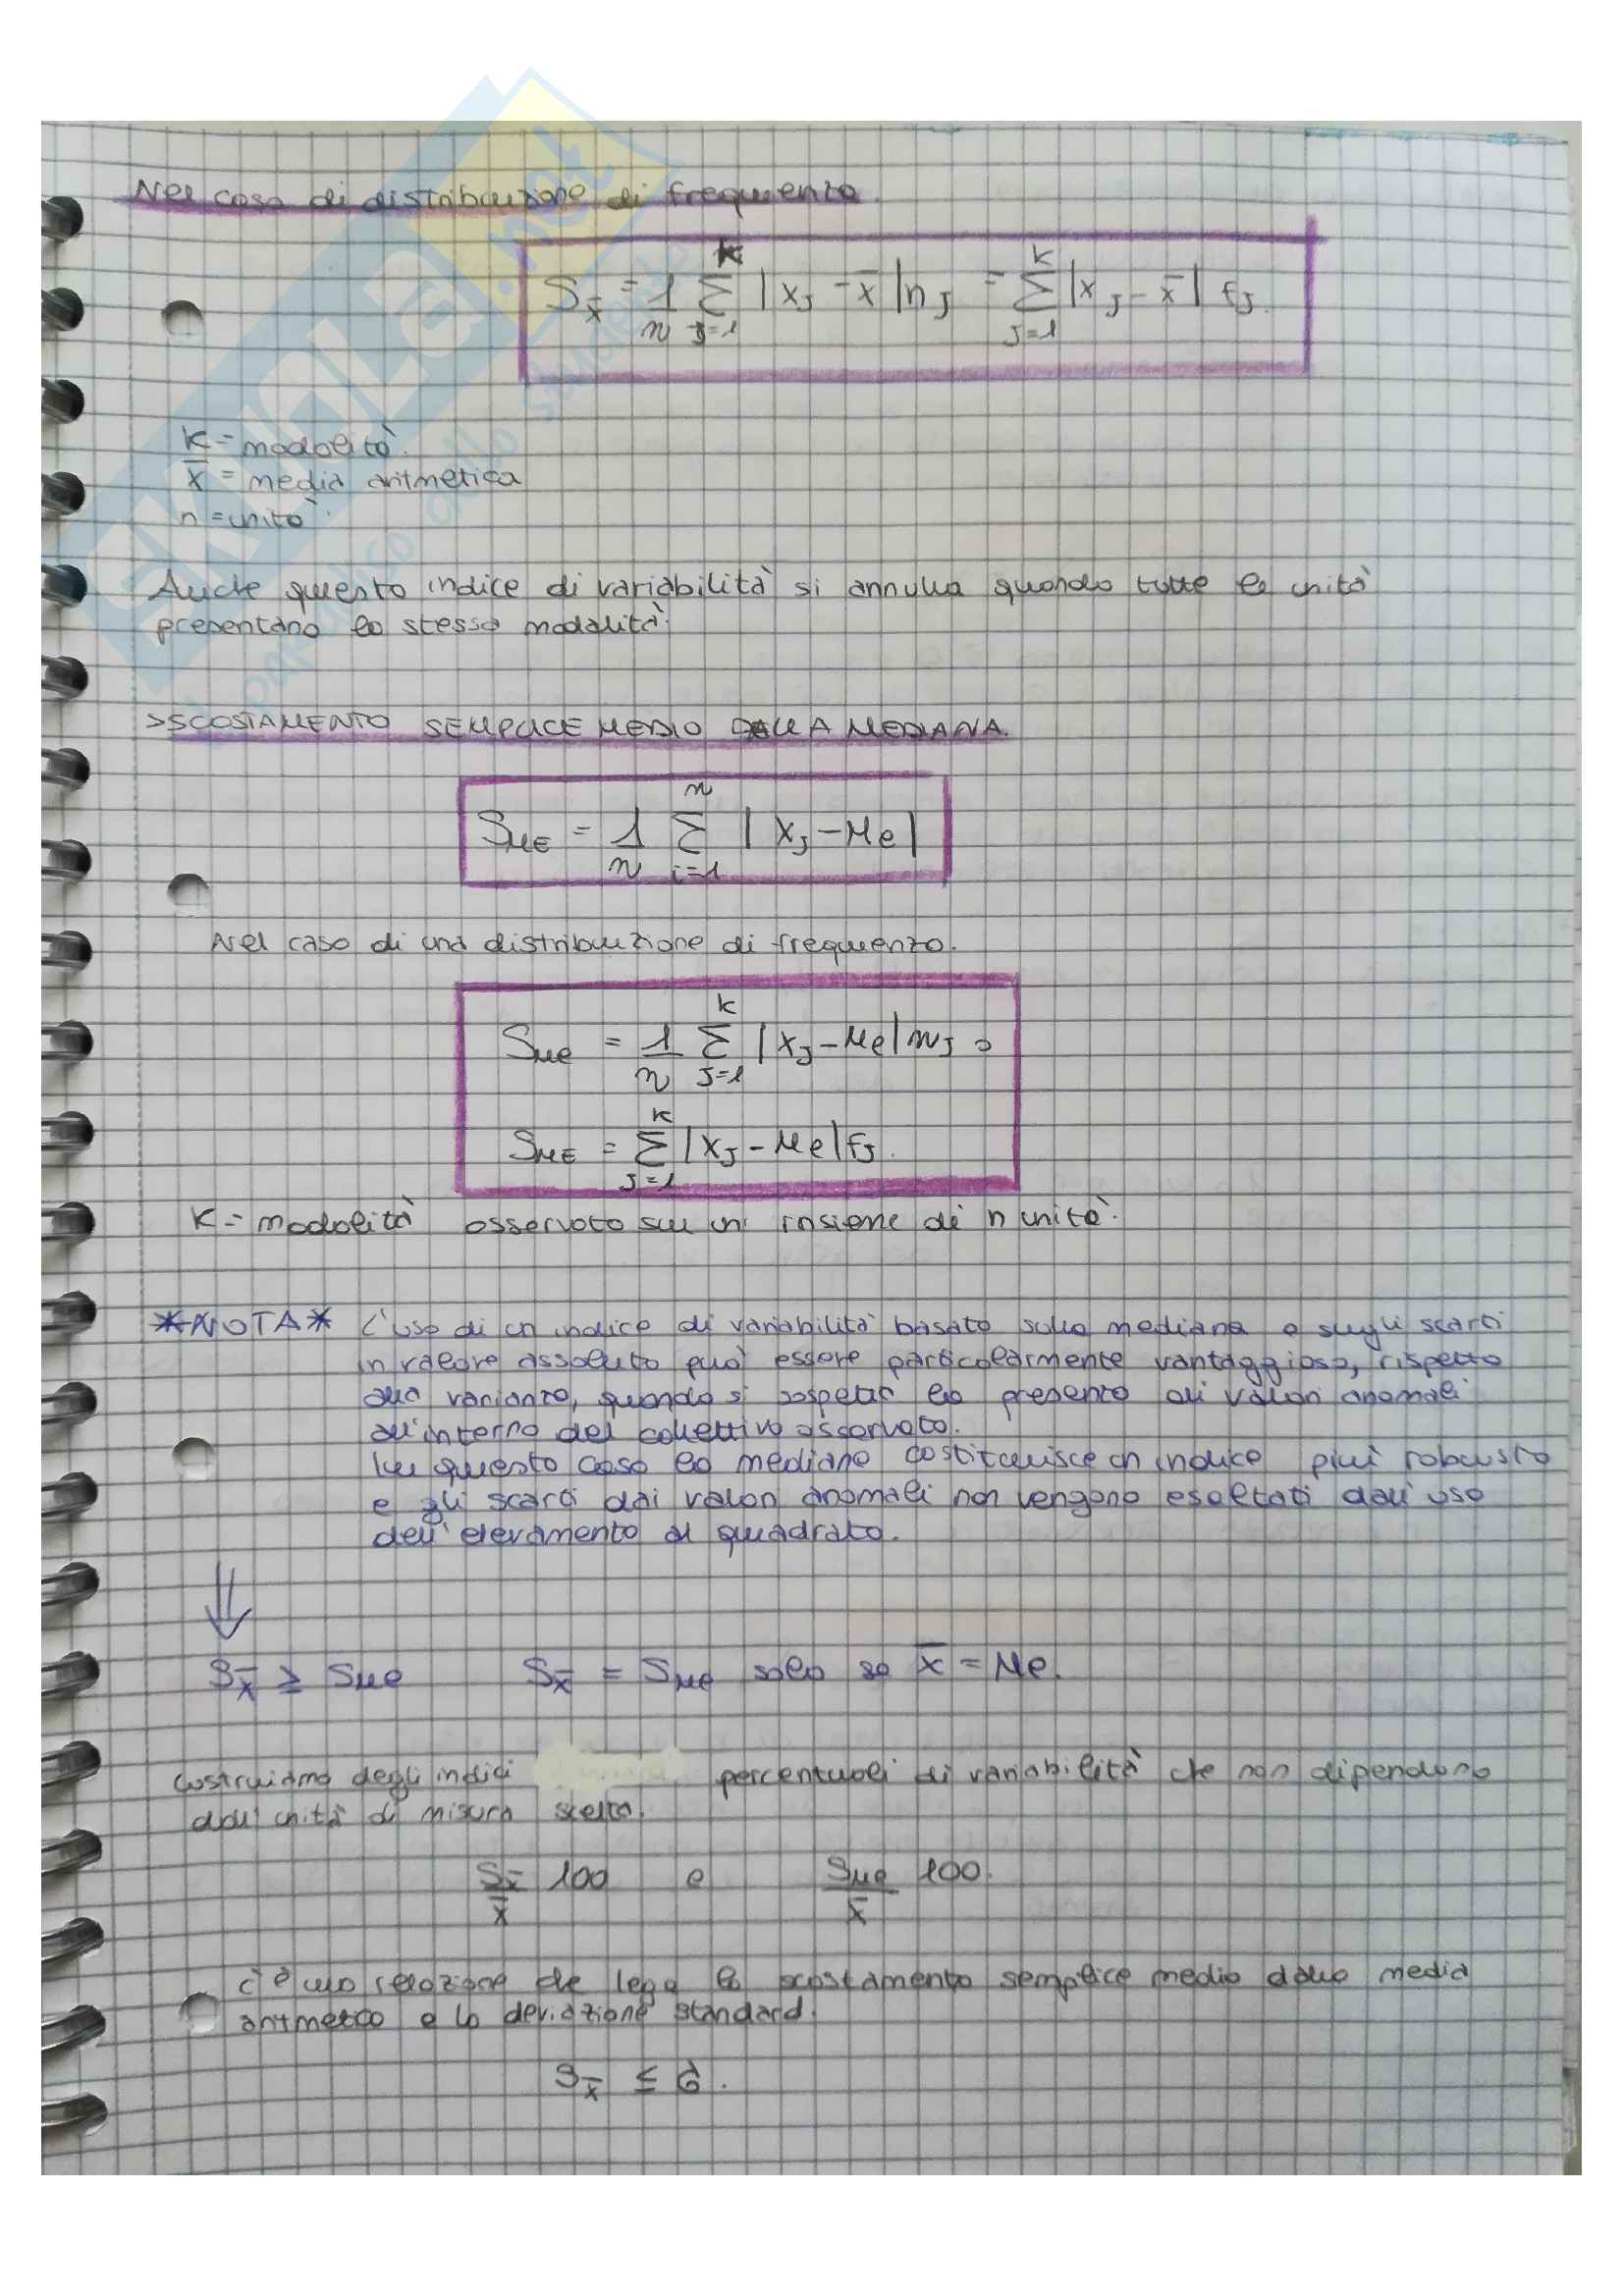 Nel caso di distribuzione di frequenza.
S_x̄ = 1/n Σ_{j=1}^{k} |x_j - x̄| n_j = Σ_{j=1}^{k} |x_j - x̄| f_j.
K = modalità.
x̄ = media aritmetica
n = unità.
Anche questo indice di variabilità si annulla quando tutte le unità
presentano la stessa modalità.
>SCOSTAMENTO SEMPLICE MEDIO DALLA MEDIANA.
S_ME = 1/n Σ_{i=1}^{n} |x_j - Me|
Nel caso di una distribuzione di frequenza.
S_Me = 1/n Σ_{j=1}^{k} |x_j - Me| n_j o
S_ME = Σ_{j=1}^{k} |x_j - Me| f_j.
K = modalità osservata su un insieme di n unità.
*NOTA* L'uso di un indice di variabilità basato sulla mediana e sugli scarti
in valore assoluto può essere particolarmente vantaggioso, rispetto
alla varianza, quando si sospetta la presenza di valori anomali
all'interno del collettivo osservato.
In questo caso la mediana costituisce un indice più robusto
e gli scarti dai valori anomali non vengono esaltati dall'uso
dell'elevamento al quadrato.
⇓
S_x̄ ≥ S_Me S_x̄ = S_Me solo se x̄ = Me.
Costruiamo degli indici percentuali di variabilità che non dipendono
dall'unità di misura scelta.
S_x̄/x̄ 100 e S_Me/x̄ 100.
C'è una relazione che lega lo scostamento semplice medio dalla media
aritmetica e la deviazione standard.
S_x̄ ≤ σ.
SKUOLA.net